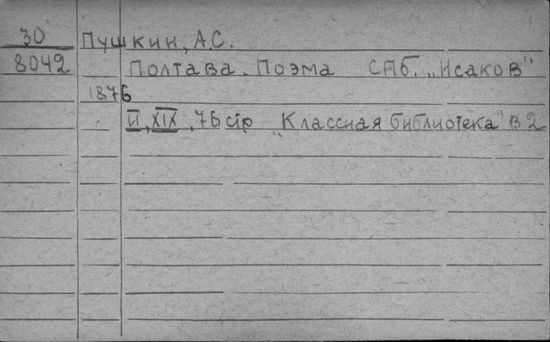 30 Пушкин, А.С.
8042 Полтава. Поэма СПб. „Исаков"
1876
II, XIX, 76 стр „Классная библиотека" В 2